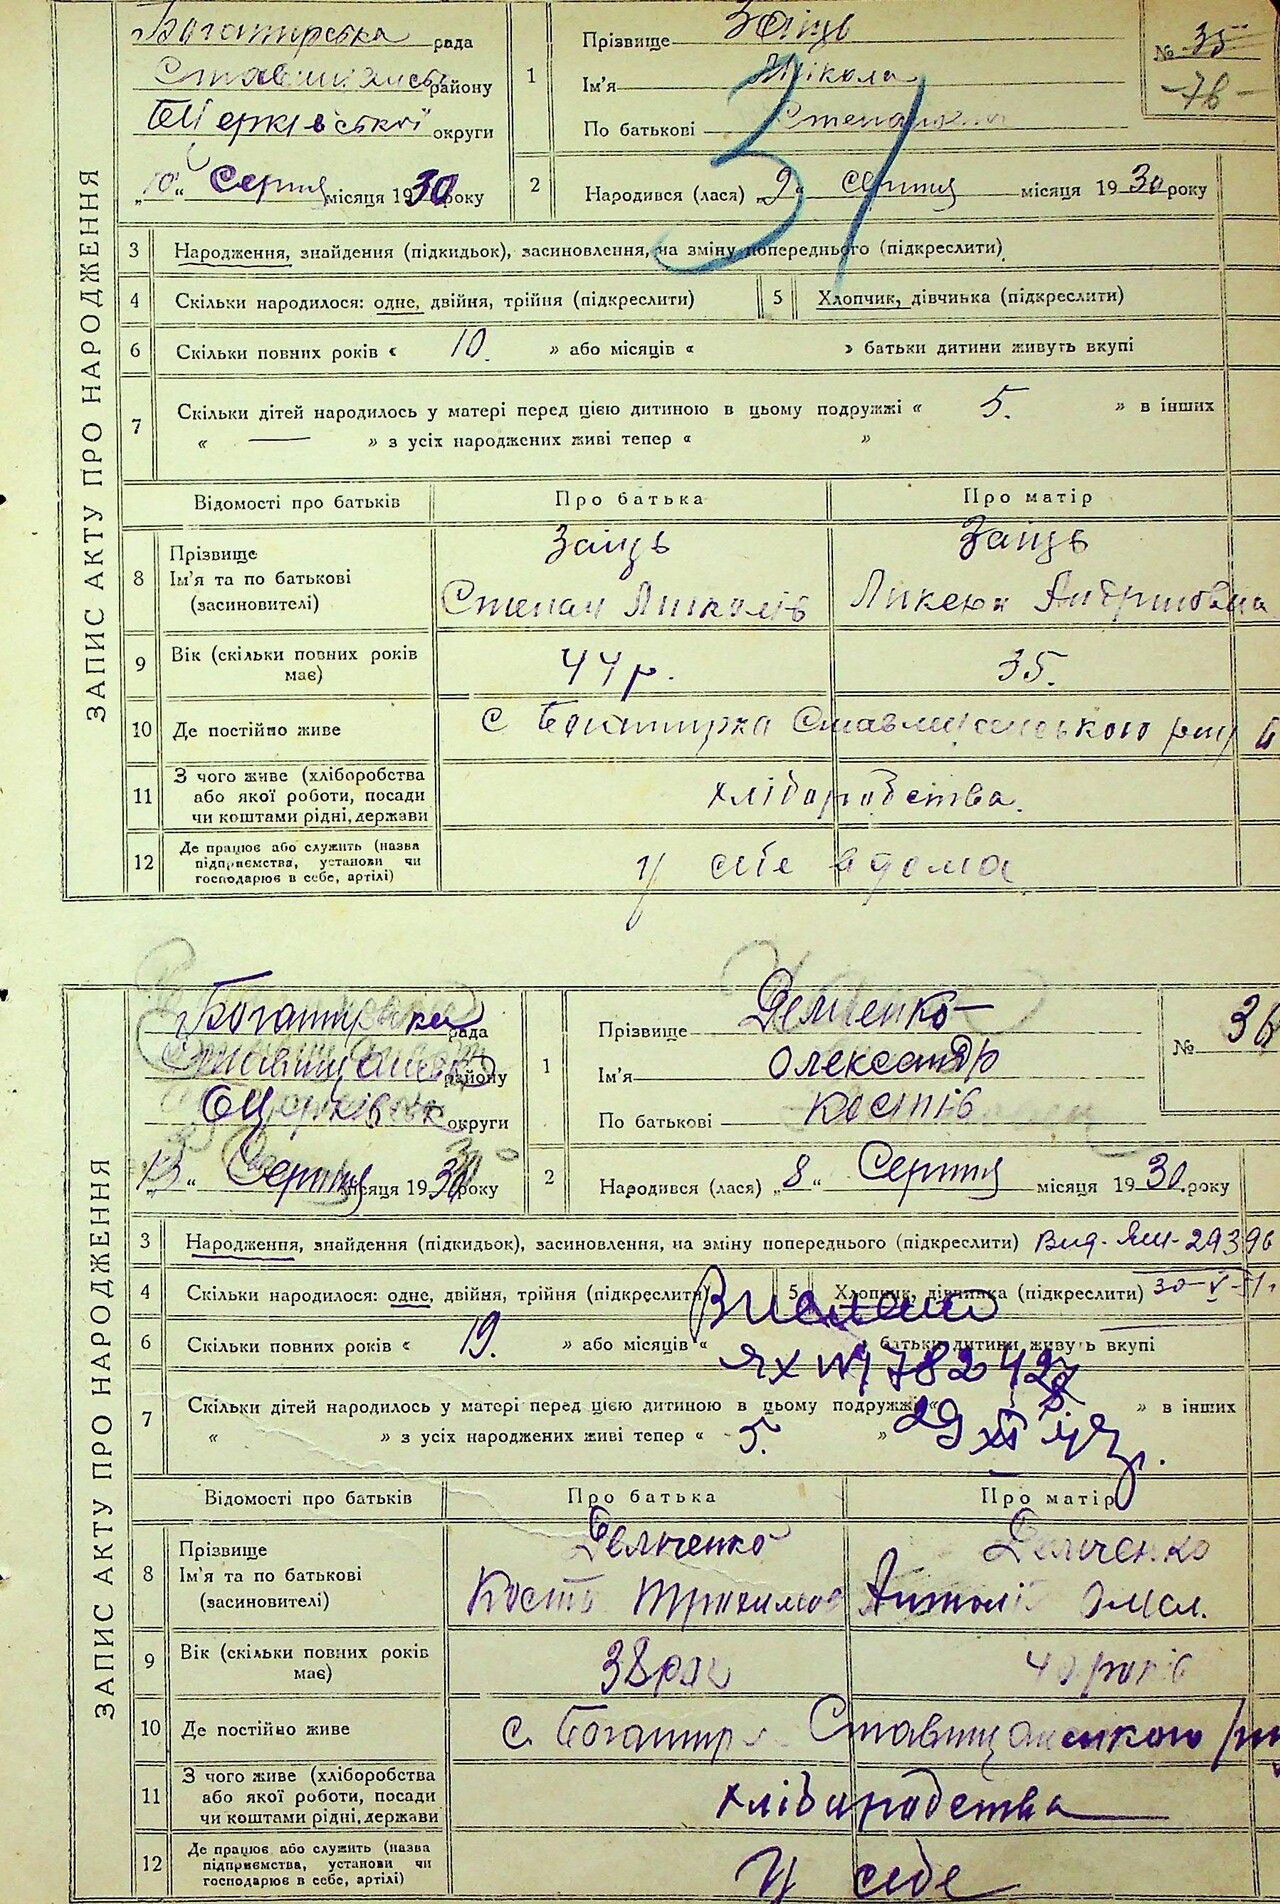 ЗАПИС АКТУ ПРО НАРОДЖЕННЯ
Богатирська рада
району
БЦерківської округи
„10“ Серпня місяця 1930 року
1
Прізвище Заїць
Ім'я Микола
По батькові
№ 35
-78-
31
2
Народився (лася) „2“ серпня місяця 1930 року
3 Народження, знайдення (підкидьок), засиновлення, на зміну попереднього (підкреслити)
4 Скільки народилося: одне, двійня, трійня (підкреслити) 5 Хлопчик, дівчинка (підкреслити)
6 Скільки повних років « 10. » або місяців « » батьки дитини живуть вкупі
7 Скільки дітей народилось у матері перед цією дитиною в цьому подружжі « 5. » в інших
« — » з усіх народжених живі тепер « »
Відомості про батьків Про батька Про матір
8 Прізвище Ім'я та по батькові (засиновителі)
Заїць Заїць
Степан
9 Вік (скільки повних років має) 44 р. 35.
10 Де постійно живе с Богатирка Ставищанського
11 З чого живе (хліборобства або якої роботи, посади чи коштами рідні, держави хліборобства.
12 Де працює або служить (назва підприємства, установи чи господарює в себе, артілі) у себе вдома
ЗАПИС АКТУ ПРО НАРОДЖЕННЯ
рада
району
БЦерківськ округи
„13“ Серпня місяця 1930 року
1
Прізвище Демченко
Ім'я Олександр
По батькові Костів
№ 36
2
Народився (лася) „8“ Серпня місяця 1930 року
3 Народження, знайдення (підкидьок), засиновлення, на зміну попереднього (підкреслити)
4 Скільки народилося: одне, двійня, трійня (підкреслити) 5 Хлопчик, дівчинка (підкреслити)
6 Скільки повних років « 19. » або місяців « » батьки дитини живуть вкупі
7 Скільки дітей народилось у матері перед цією дитиною в цьому подружжі « » в інших
« » з усіх народжених живі тепер « 5. »
Відомості про батьків Про батька Про матір
8 Прізвище Ім'я та по батькові (засиновителі)
Демченко Демченко
Кость
9 Вік (скільки повних років має) 38 40 років
10 Де постійно живе с. Ставищанського
11 З чого живе (хліборобства або якої роботи, посади чи коштами рідні, держави хліборобства
12 Де працює або служить (назва підприємства, установи чи господарює в себе, артілі) У себе